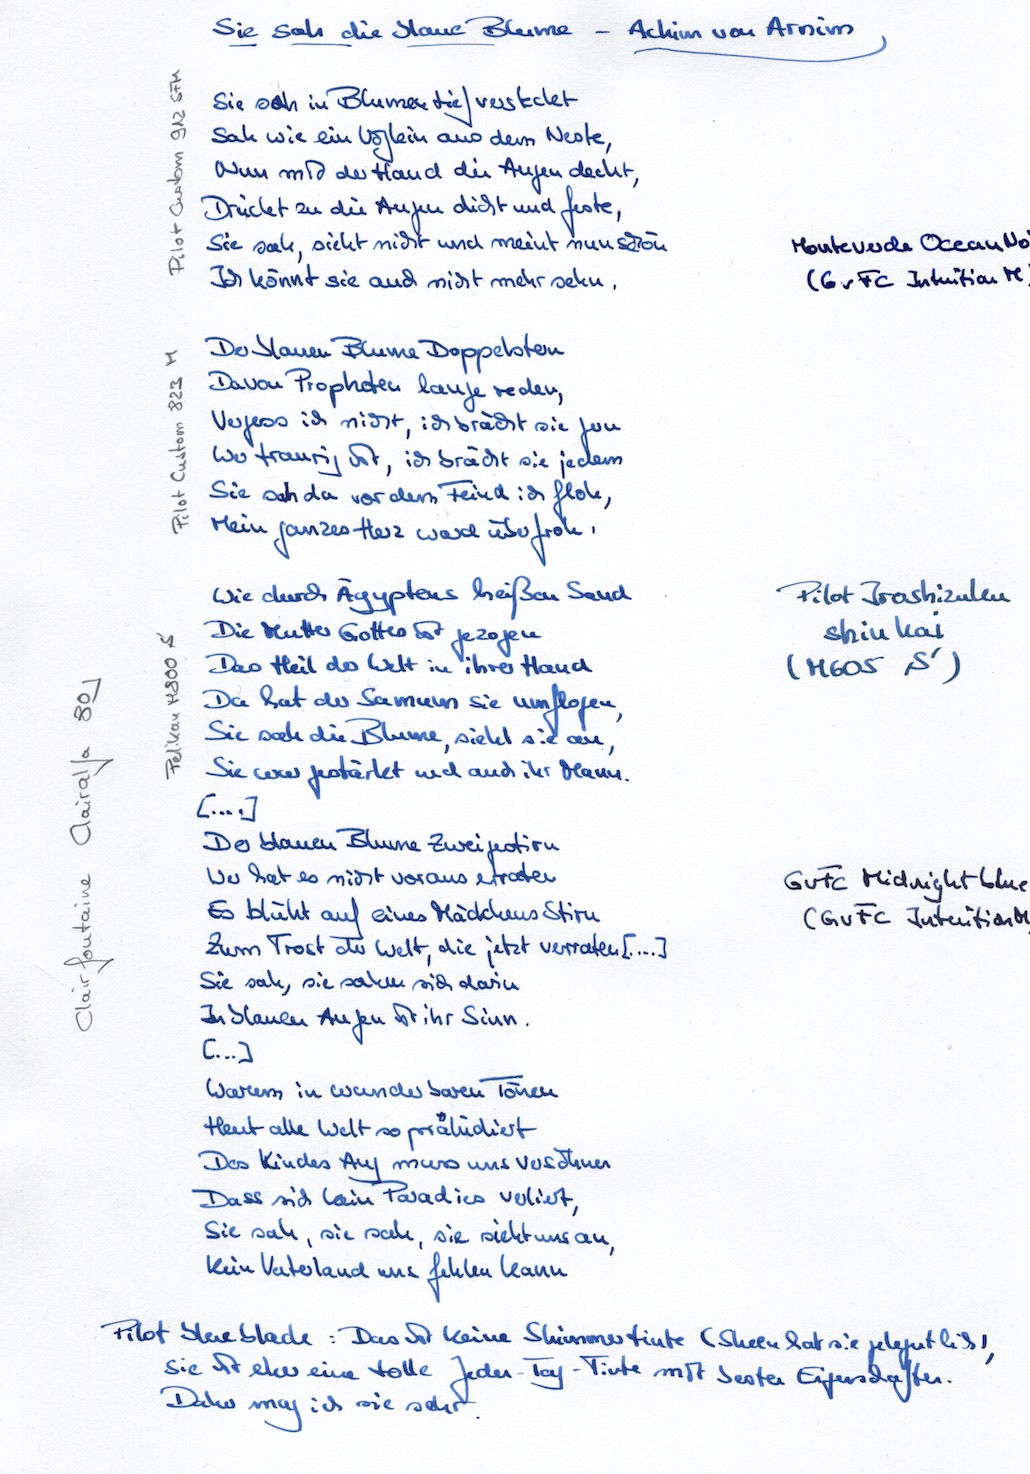 Sie sah die blaue Blume – Achim von Arnim
Pilot Custom 912 SFM
Sie sah in Blumen tief versteckt
Sah wie ein Vöglein aus dem Neste,
Nun mit der Hand die Augen deckt,
Drücket zu die Augen dicht und feste,
Sie sah, sieht nicht und meint nun schön
Ich könnt sie auch nicht mehr sehn.
Monteverde Ocean Noi
(GvFC Intuition M)
Pilot Custom 823 M
Der blauen Blume Doppelstern
Davon Propheten lange reden,
Vergess ich nicht, ich brächt sie gern
Wer traurig ist, ich brächt sie jedem
Sie sah da vor dem Feind ich floh,
Mein ganzes Herz ward überfroh.
Pelikan M800 S
Wie durch Ägyptens heißen Sand
Die Mutter Gottes ist gezogen
Das Heil der Welt in ihrer Hand
Da hat der Samum sie umflogen,
Sie sah die Blume, sieht sie an,
Sie war gestärket und auch ihr Mann.
Pilot Iroshizuku
shin kai
(M605 S)
[....]
Der blauen Blume Zweigestirn
Wer hat es nicht voraus erraten
Es blüht auf eines Mädchens Stirn
Zum Trost der Welt, die jetzt verraten [....]
Sie sah, sie sahen sich darin
In blauen Augen ist ihr Sinn.
GvFC Midnight blue
(GvFC Intuition M
[...]
Warum in wunderbaren Tönen
Heut alle Welt so präludiert
Des Kindes Aug muss uns versöhnen
Dass sich kein Paradies verliert,
Sie sah, sie sah, sie sieht uns an,
Kein Vaterland uns fehlen kann
Clairfontaine Clairalfa 80g
Pilot blue black : Das ist keine Shimmertinte (Sheen hat sie gelegentlich),
sie ist eher eine tolle Jeden-Tag-Tinte mit besten Eigenschaften.
Daher mag ich sie sehr.